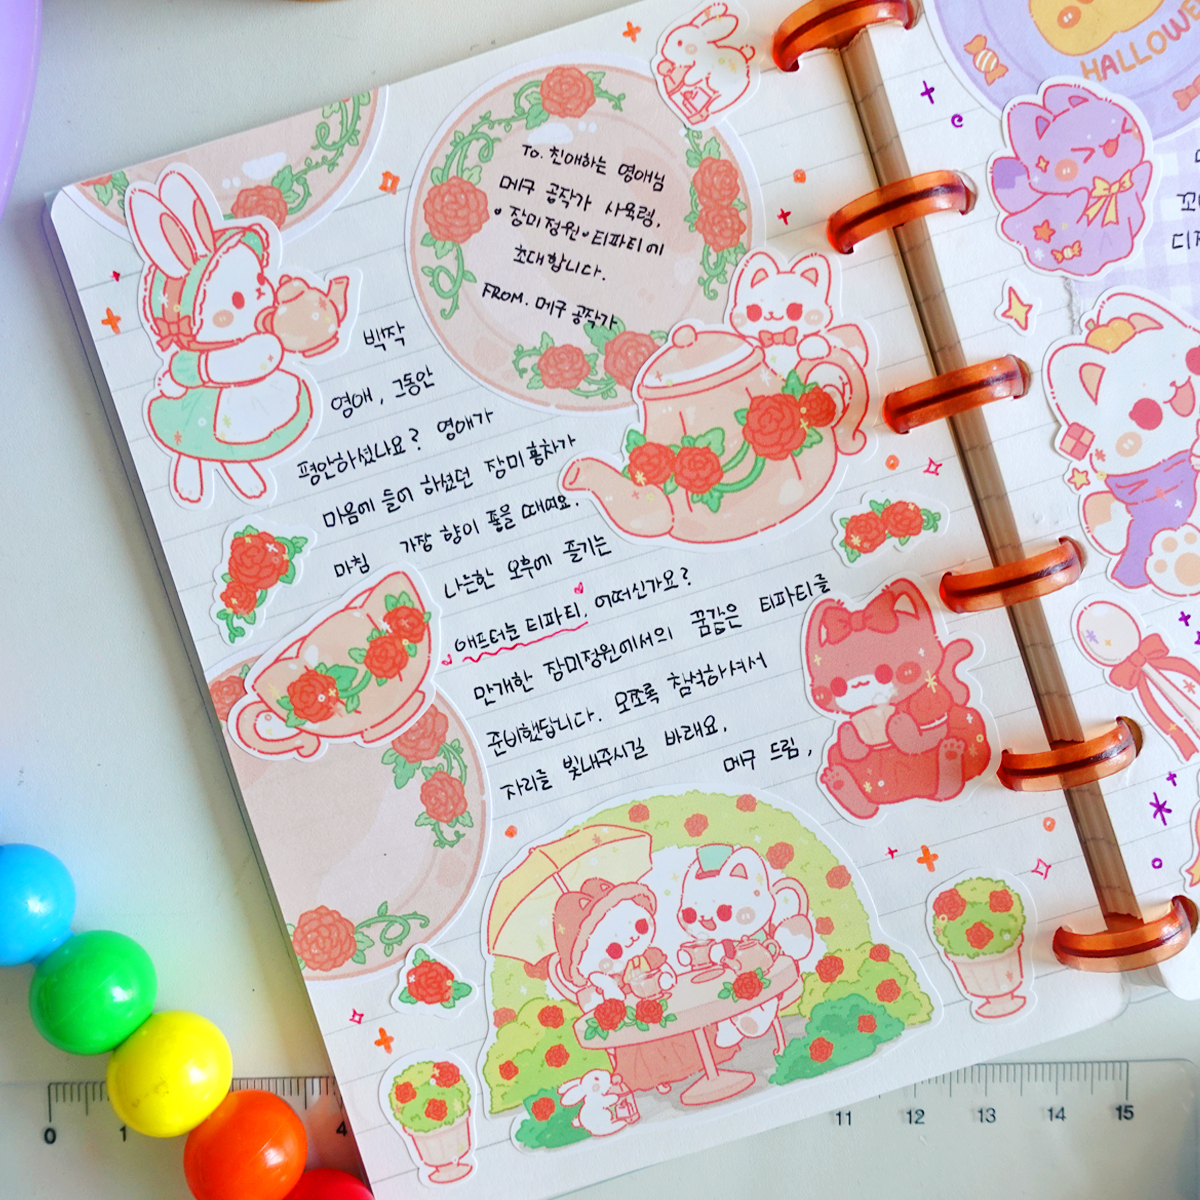 To. 친애하는 영애님
메구 공작가 사육령,
장미정원 티파티에
초대합니다.
FROM. 메구 공작가
빅작
영애, 그동안
평안하셨나요? 영애가
마음에 들어 하셨던 장미홍차가
마침 가장 향이 좋을 때예요.
나른한 오후에 즐기는
애프터눈 티파티, 어떠신가요?
만개한 장미정원에서의 꿈같은 티파티를
준비했답니다. 모쪼록 참석하셔서
자리를 빛내주시길 바래요.
메구 드림,
HALLOWE
디
0 1 4 11 12 13 14 15